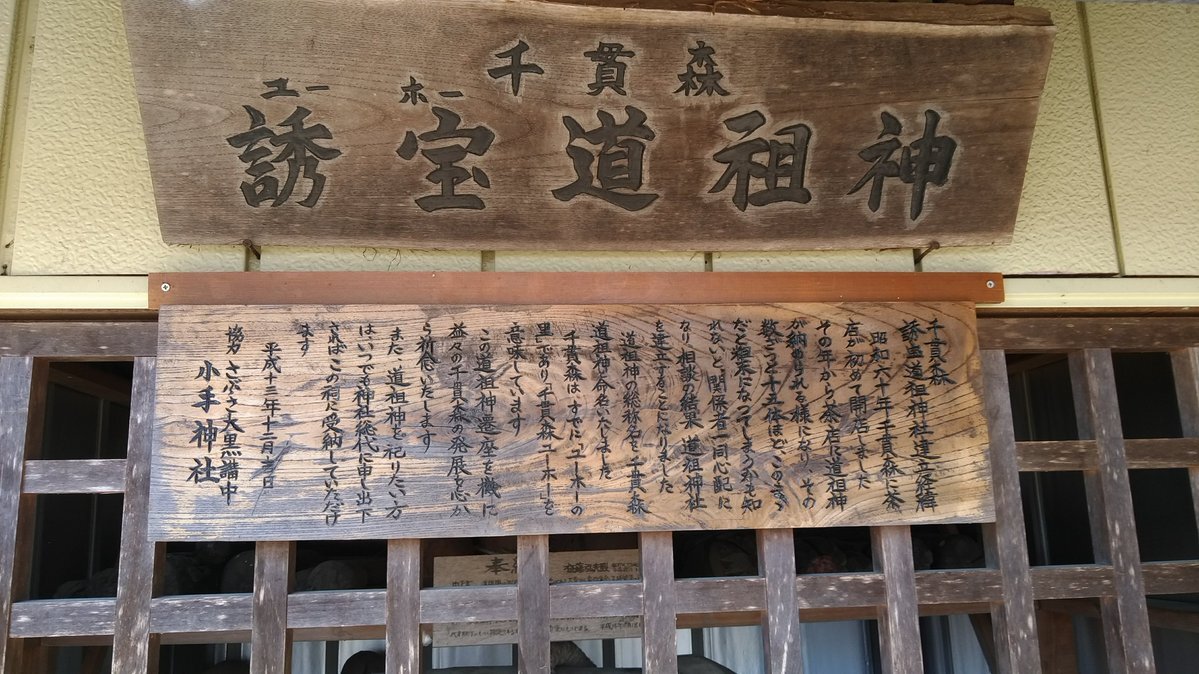 千貫森
ユーホー
誘宝道祖神
千貫森
誘宝道祖神社建立経緯
昭和六十年千貫森に茶
店が初めて開店しました
その年から茶店に道祖神
が納められる様になり、その
数ざっと十五体ほど、このまゝ
だと粗末になってしまうかも知
れないと関係者一同心配に
なり相談の結果道祖神社
を建立することになりました
道祖神の総称名を千貫森
道祖神と命名いたしました
千貫森は、すでに、ユーホーの
里であり「千貫森ユーホー」を
意味しています
この道祖神遷座を機に
益々の千貫森の発展を心か
ら祈念いたします
また道祖神を祀りたい方
はいつでも神社総代に申し出下
さればこの祠に受納していただけ
ます
平成十三年十二月三日
協力 さぶさと大黒講中
小手神社
奉納